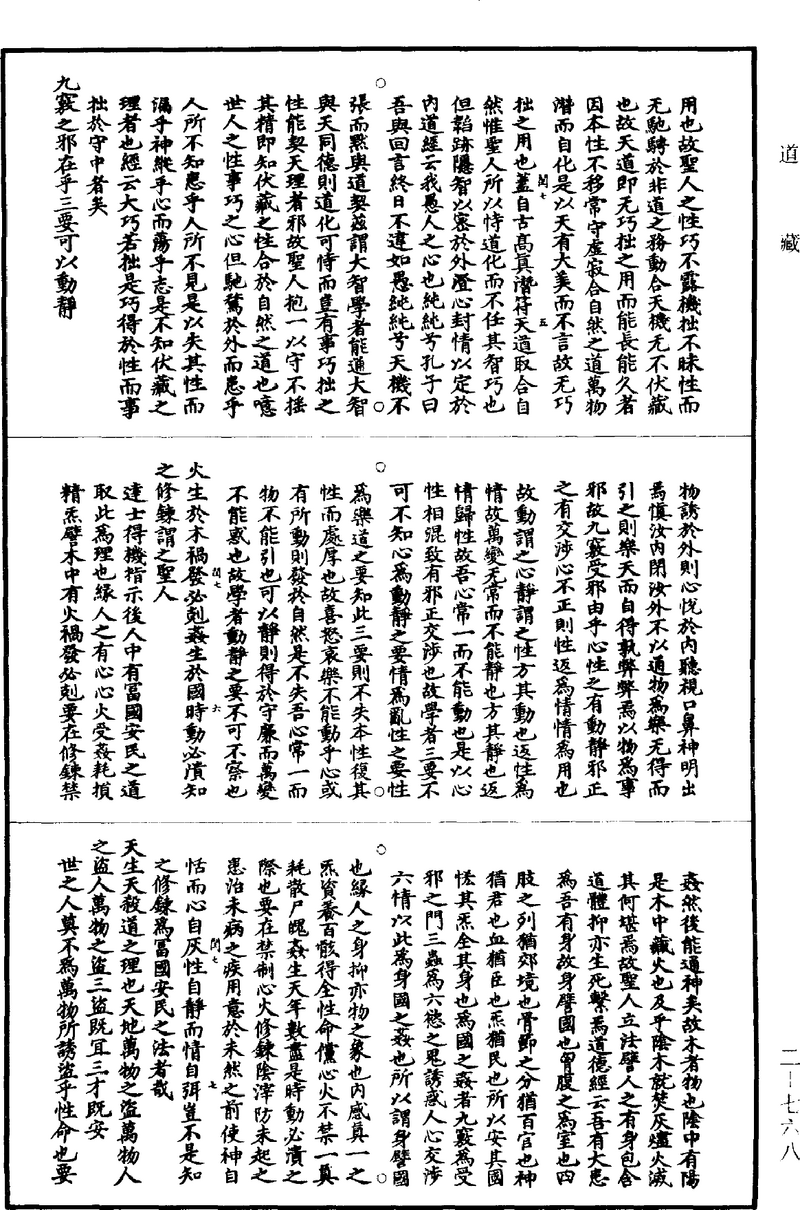 道藏
二－七六八
用也故聖人之性巧不露機拙不昧性而
无馳騁於非道之務動合天機无不伏藏
也故天道即无巧拙之用而能長能久者
因本性不移常守虛寂合自然之道萬物
潛而自化是以天有大美而不言故无巧
閏七 五
拙之用也蓋自古高真潛符天道取合自
然惟聖人所以恃道化而不任其智巧也
但韜跡隱智以密於外澄心封情以定於
內道經云我愚人之心也純純兮孔子曰
吾與回言終日不違如愚純純兮天機不
張而默與道契茲謂大智學者能通大智
與天同德則道化可恃而豈有事巧拙之
性能契天理者邪故聖人抱一以守不搖
其精即知伏藏之性合於自然之道也噫
世人之性事巧之心但馳騖於外而患乎
人所不知患乎人所不見是以失其性而
漏乎神縱乎心而蕩乎志是不知伏藏之
理者也經云大巧若拙是巧得於性而事
拙於守中者矣
九竅之邪在乎三要可以動靜
物誘於外則心悅於內聽視口鼻神明出
焉慎汝內閉汝外不以道物為樂无得而
引之則樂天而自得孰弊弊焉以物為事
邪故九竅受邪由乎心性之有動靜邪正
之有交涉心不正則性返為情情為用也
故動謂之心靜謂之性方其動也返性為
情故萬變无常而不能靜也方其靜也返
情歸性故吾心常一而不能動也是以心
性相混致有邪正交涉也故學者三要不
可不知心為動靜之要情為亂性之要性
為樂道之要知此三要則不失本性復其
性而處厚也故喜怒哀樂不能動乎心或
有所動則發於自然是不失吾心常一而
物不能引也可以靜則得於守廉而萬變
不能惑也故學者動靜之要不可不察也
閏七 六
火生於木禍發必剋姦生於國時動必潰知
之修鍊謂之聖人
達士得機指示後人中有富國安民之道
取此為理也緣人之有心心火受姦耗損
精炁譬木中有火禍發必剋要在修鍊禁
姦然後能通神矣故木者物也陰中有陽
是木中藏火也及乎陰木就焚灰燼火滅
其何堪焉故聖人立法譬人之有身包含
道體抑亦生死繫焉道德經云吾有大患
為吾有身故身譬國也胷腹之為室也四
肢之列猶郊境也骨節之分猶百官也神
猶君也血猶臣也炁猶民也所以安其國
恡其炁全其身也為國之姦者九竅為受
邪之門三蟲為六慾之鬼誘惑人心交涉
六情以此為身國之姦也所以謂身譬國
也緣人之身抑亦物之象也內感真一之
炁資養百骸得全性命儻心火不禁一真
耗散尸魄姦生天年數盡是時動必潰之
際也要在禁制心火修鍊陰滓防未起之
患治未病之疾用意於未然之前使神自
閏七 七
恬而心自灰性自靜而情自弭豈不是知
之修鍊為富國安民之法者哉
天生天殺道之理也天地萬物之盜萬物人
之盜人萬物之盜三盜既宜三才既安
世之人莫不為萬物所誘盜乎性命也要